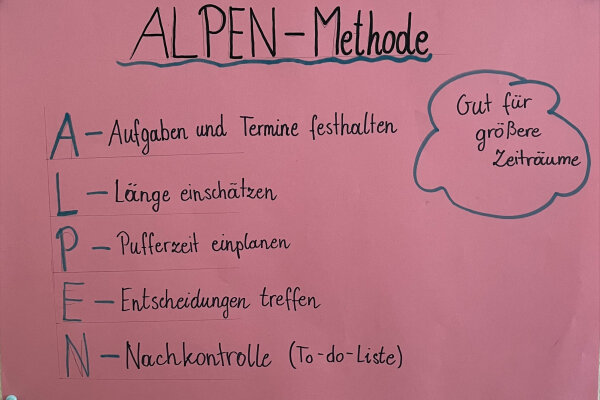 ALPEN-Methode
A - Aufgaben und Termine festhalten
L - Länge einschätzen
P - Pufferzeit einplanen
E - Entscheidungen treffen
N - Nachkontrolle (To-do-Liste)
Gut für
größere
Zeiträume